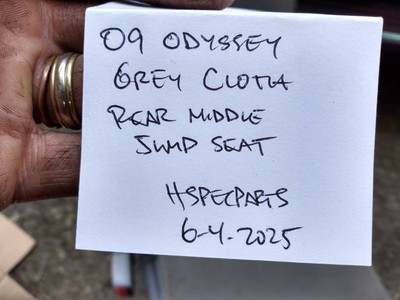 09 ODYSSEY
GREY CLOTH
REAR MIDDLE
JUMP SEAT
HSPECPARTS
6-4-2025